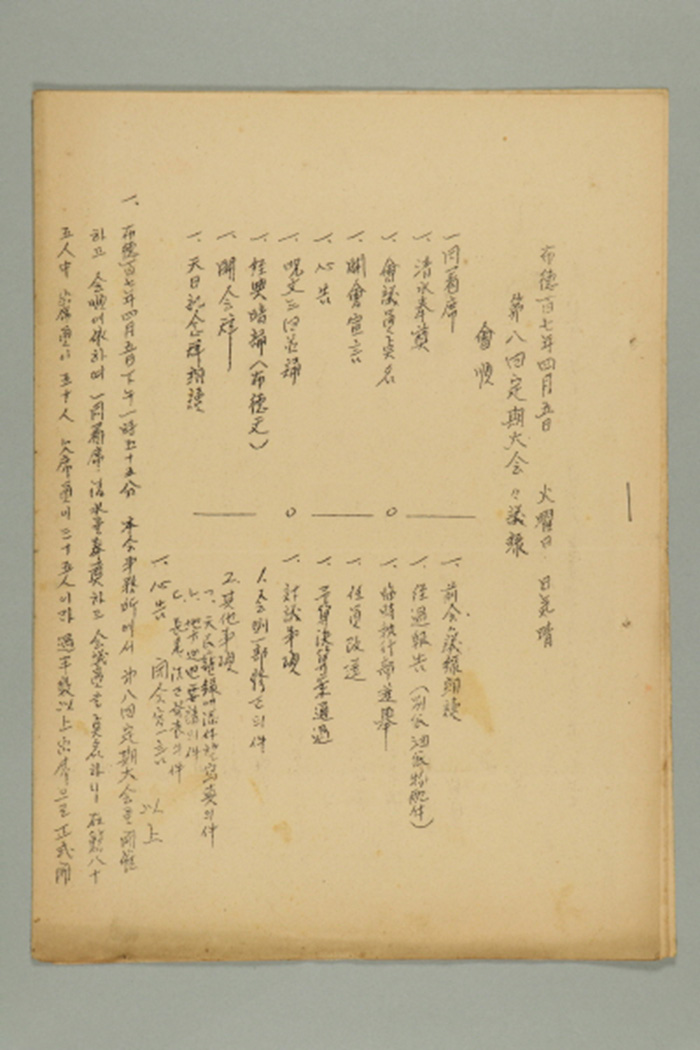 布德百七年四月五日 火曜日 日氣晴
第八回定期大会々議録
會順
一同着席
一. 清水奉奠
一. 會議員点名
一. 開會宣言
一. 心告
一. 呪文三回並誦
一. 経典暗誦(布德文)
一. 開会辞
一. 天日紀念辞朗讀
一. 前会々議録朗讀
一. 経過報告
一. 臨時執行部選擧
一. 任員改選
一. 予算決算案通過
一. 討議事項
1. 会則一部修正의件
2. 其他事項
一. 心告 閉会宣言
以上
一. 布德百七年四月五日下午一時五十五分 本会事務所에서 第八回定期大会를 開催
하고 会順에依하여 一同着席 清水를奉奠하고 会議員을点名하니 在籍八十
五人中 出席員이 五十人 欠席員이 三十五人이라 過半数以上出席으로 正式開